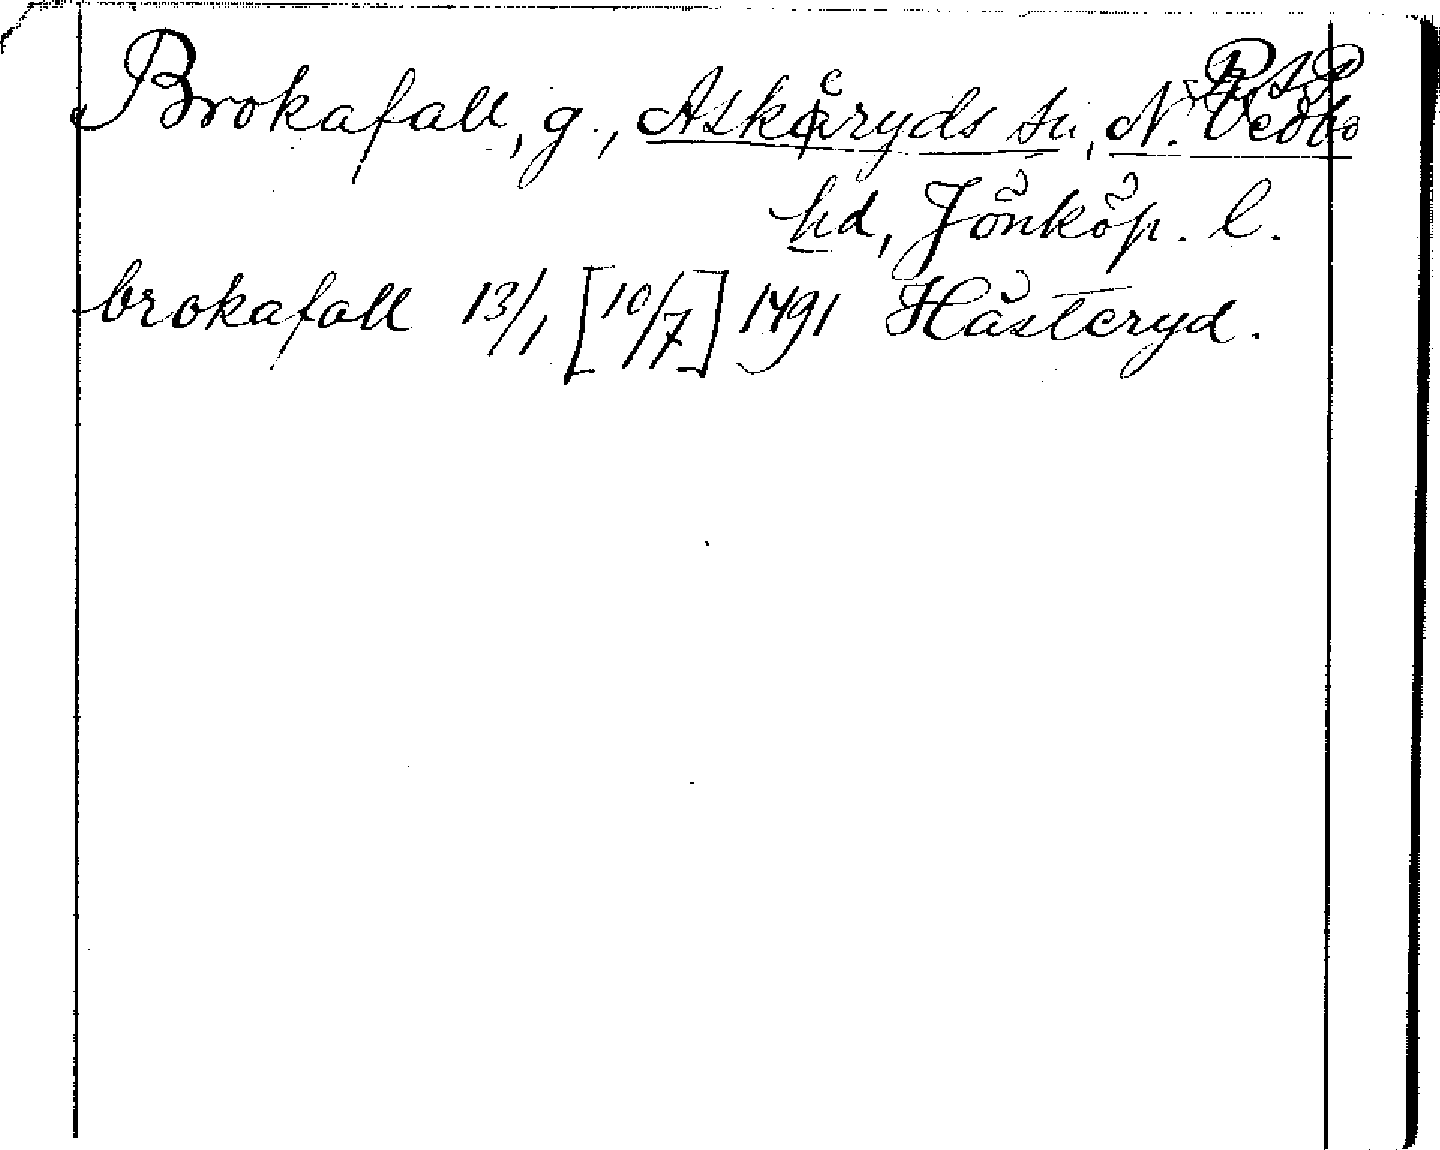 Brokafall, g., Askeryds sn, N. Vedbo
hd, Jönköp. l.
brokafall 13/1 [10/7] 1491 Hästeryd.